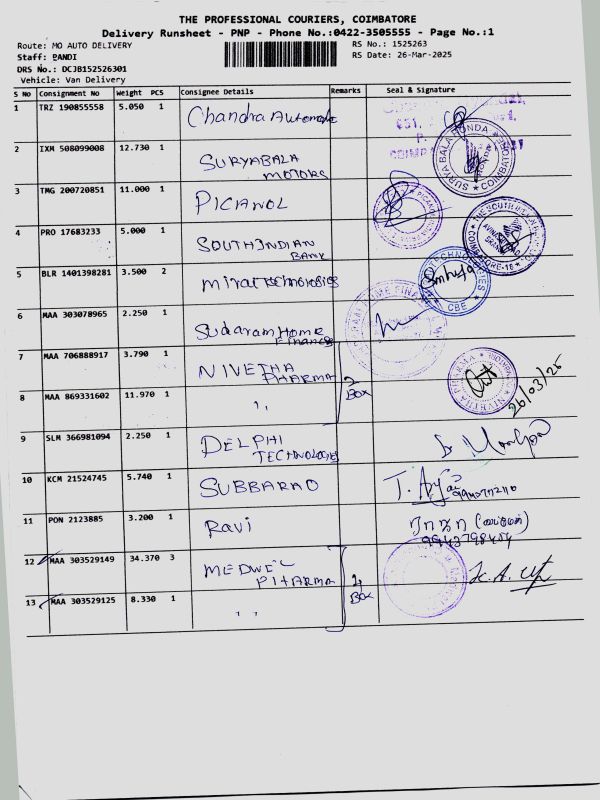 THE PROFESSIONAL COURIERS, COIMBATORE
Delivery Runsheet - PNP - Phone No.:0422-3505555 - Page No.:1
Route: MO AUTO DELIVERY RS No.: 1525263
Staff: PANDI RS Date: 26-Mar-2025
DRS No.: DCJB152526301
Vehicle: Van Delivery
S No Consignment No Weight PCS Consignee Details Remarks Seal & Signature
1 TRZ 190855558 5.050 1 Chandra
2 IXM 508099008 12.730 1 SURYABALA
MOTORS
3 TMG 200720851 11.000 1 PICANOL
4 PRO 17683233 5.000 1 SOUTHINDIAN
BANK
5 BLR 1401398281 3.500 2 Miraj Technologies
6 MAA 303078965 2.250 1 Sudaram Home
Finance
7 MAA 706888917 3.790 1 NIVETHA
PHARMA
2
BOX
26/03/25
8 MAA 869331602 11.970 1 ,,
9 SLM 366981094 2.250 1 DELPHI
TECHNOLOGIES
10 KCM 21524745 5.740 1 SUBBARAO
11 PON 2123885 3.200 1 Ravi ராஜா
12 MAA 303529149 34.370 3 MEDWEL
PHARMA
4
BOX
13 MAA 303529125 8.330 1 ,,
SURYA BALA HONDA
COIMBATORE
CBE
NIVETHA PHARMA